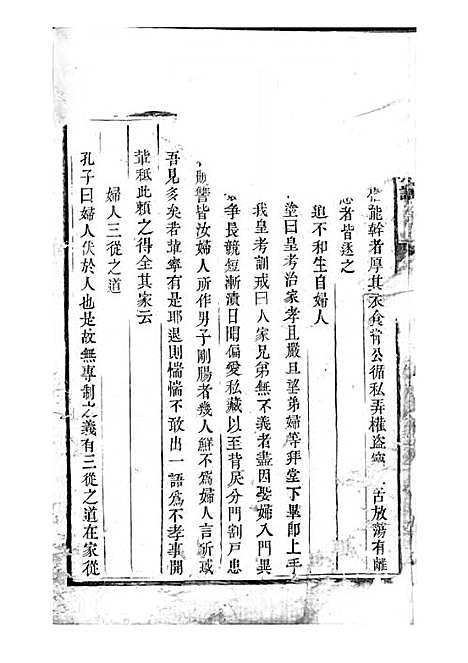 能幹者厚其衣食背公循私弄權盜 舌放蕩有離
惡者皆逐之
追不和生自婦人
塗曰皇考治家孝且嚴旦望弟婦等拜堂下畢卽上手
我皇考訓戒曰人家兄弟無不義者盡因娶婦入門異
爭長競短漸漬日聞偏愛私藏以至背戾分門割戶患
讐皆汝婦人所作男子剛腸者幾人鮮不爲婦人言所惑
吾見多矣若輩寧有是耶退則惴惴不敢出一語爲不孝事開
輩秪此賴之得全其家云
婦人三從之道
孔子曰婦人伏於人也是故無專制之義有三從之道在家從